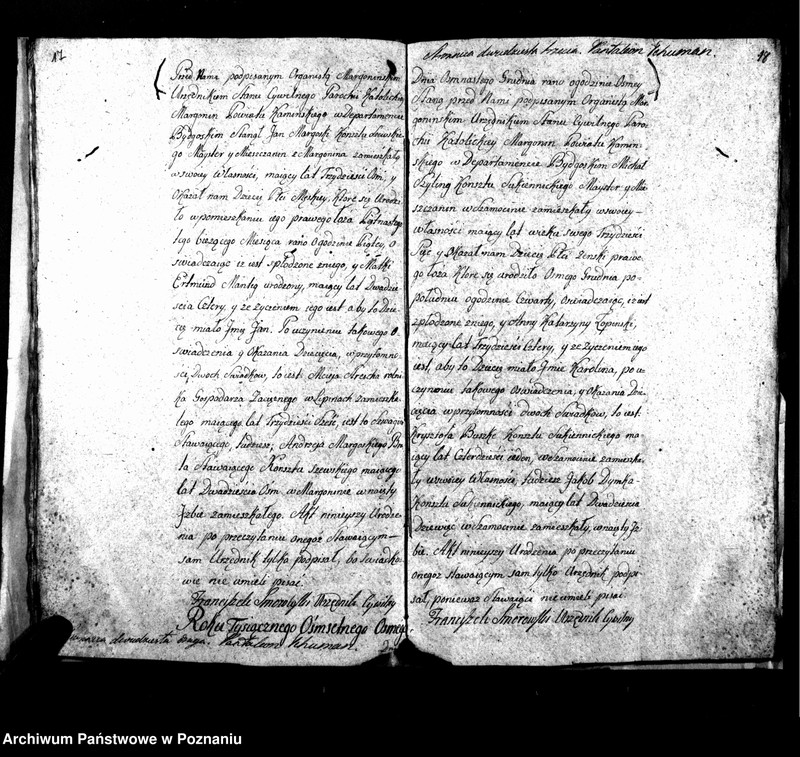 17
Przed Nami podpisanym Organistą Margoninskim
Urzędnikiem Stanu Cywilnego Parochii Katolickiey
Margonin Powiatu Kaminskiego w Departamencie
Bydgoskim Stanął Jan Margoski Konsztu
go Mayster y Mieszczanin z Margonina zamieszkały
w swoiey własności, maiący lat Trzydzieści Ośm, y
Okazał nam Dziecię Płci Męskiey, które się urodzi-
ło w pomieszkaniu iego prawego łoża Piętnaste-
tego bieżącego Miesiąca rano o godzinie Piątey, o
swiadczaiąc iż iest spłodzone z niego, y Matki
Ertmund Mantig urodzony, maiący lat Dwadzie
scia Cztery, y ze życzeniem iego iest aby to Dzie
cię miało Jmę Jan. Po uczynieniu takowego O
swiadczenia y Okazania Dziecięcia, w przytomno
sci Dwoch Swiadkow, to iest: rolni
ka Gospodarza w Lipinach zamieszka
łego maiącego lat Trzydzieści Sześć, iest to Szwagier
Stawaiącego, tudziesz; Andrzeja Margoskiego Br
ta Stawaiącego Konsztu Szewskiego maiącego
lat Dwadzieścia Ośm w Margoninie w naięty
Jzbie zamieszkałego. Akt ninieyszy Urodze-
nia po przeczytaniu onegoż Stawaiącym —
sam Urzędnik tylko podpisał, bo swiadko-
wie nie umieli pisać
Franciszek Smorowski Urzędnik Cywilny
Roku Tysiącznego Ośmsetnego Osmego
Stronica dwudziesta druga. Pantaleon Schuman.
Stronica dwudziesta trzecia. Pantaleon Schuman.
18
Dnia Osmnastego Grudnia rano o godzinie Osmey
Staną przed Nami podpisanym Organistą Mar
goninskim Urzędnikiem Stanu Cywilnego Paro
chii Katolickiey Margonin Powiatu Kamin-
skiego w Departamencie Bydgoskim Michał
Szyling Konsztu Sukiennickiego Mayster, y Mie
szczanin w Szamocinie zamieszkały w swoiey —
własności maiący lat wieku swego Trzydzieści
Pięć y Okazał nam Dziecię Płci Zenski prawe
go łoża Które się urodziło Osmego Grudnia po
południu o godzinie Czwarty, Oswiadczaiąc, iż iest
zpłodzone z niego, y Anny Katarzyny Topinski,
maiący lat Trzydzieści Cztery, y ze życzeniem iego
iest, aby to Dziecię miało Jmie Karolina, po u
czynieniu takowego Oswiadczenia, y Okazania Dzie
cięcia w przytomności dwoch Swiadkow, to iest
Krysztofa Buszke Konsztu Sukiennickiego ma
iący lat Czterdzieści ieden, w Szamocinie zamieszka
ły w swoiey Własności, tudziesz Jakob Dymka
Konsztu Sukiennickiego, maiący lat Dwadzieścia
Dziewięć w Szamocinie zamieszkały w naięty Jz
bie. Akt ninieyszy Urodzenia po przeczytaniu
onegoż stawaiącym sam tylko Urzędnik podpi
sał, ponieważ Stawaiąci nie umieli pisać
Franciszek Smorowski Urzędnik Cywilny
Archiwum Państwowe w Poznaniu